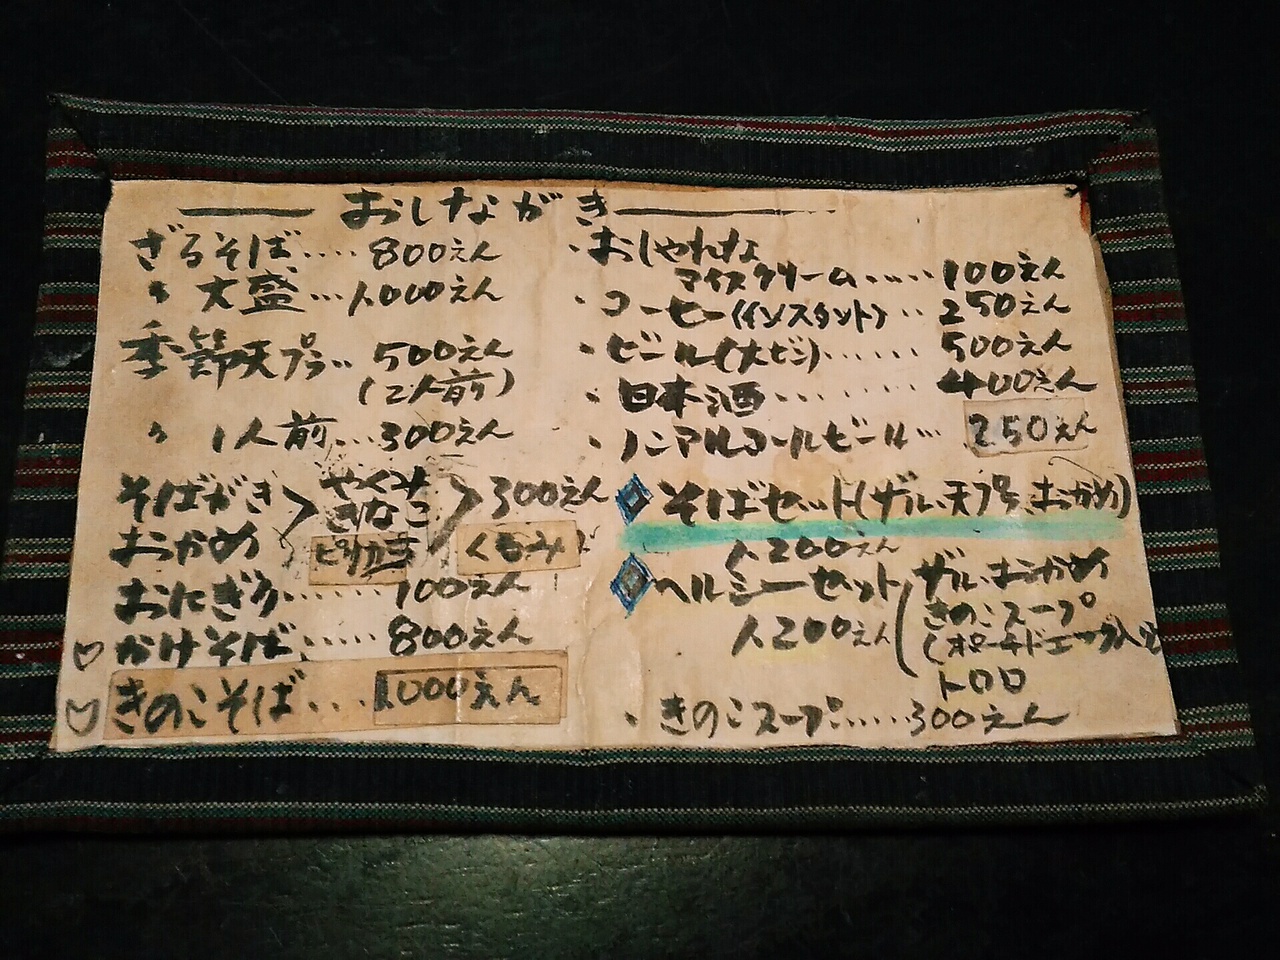 おしながき
ざるそば‥‥800えん
〃 大盛…1,000えん
季節天プラ‥500えん
(2人前)
〃 1人前…300えん
そばがき
おかめ
やくみ
きなこ
300えん
くるみ
おにぎり‥‥‥100えん
かけそば‥‥800えん
きのこそば‥‥1000えん
・おしゃれな
アイスクリーム‥‥100えん
・コーヒー(インスタント)‥250えん
・ビール(大ビン)‥‥‥500えん
・日本酒‥‥‥400えん
・ノンアルコールビール…250えん
そばセット(ザル、天プラ、おかめ)
1,200えん
ヘルシーセット
1,200えん
ザル、おかめ
きのこスープ
(ポーチドエッグ入り)
トロロ
・きのこスープ‥‥300えん